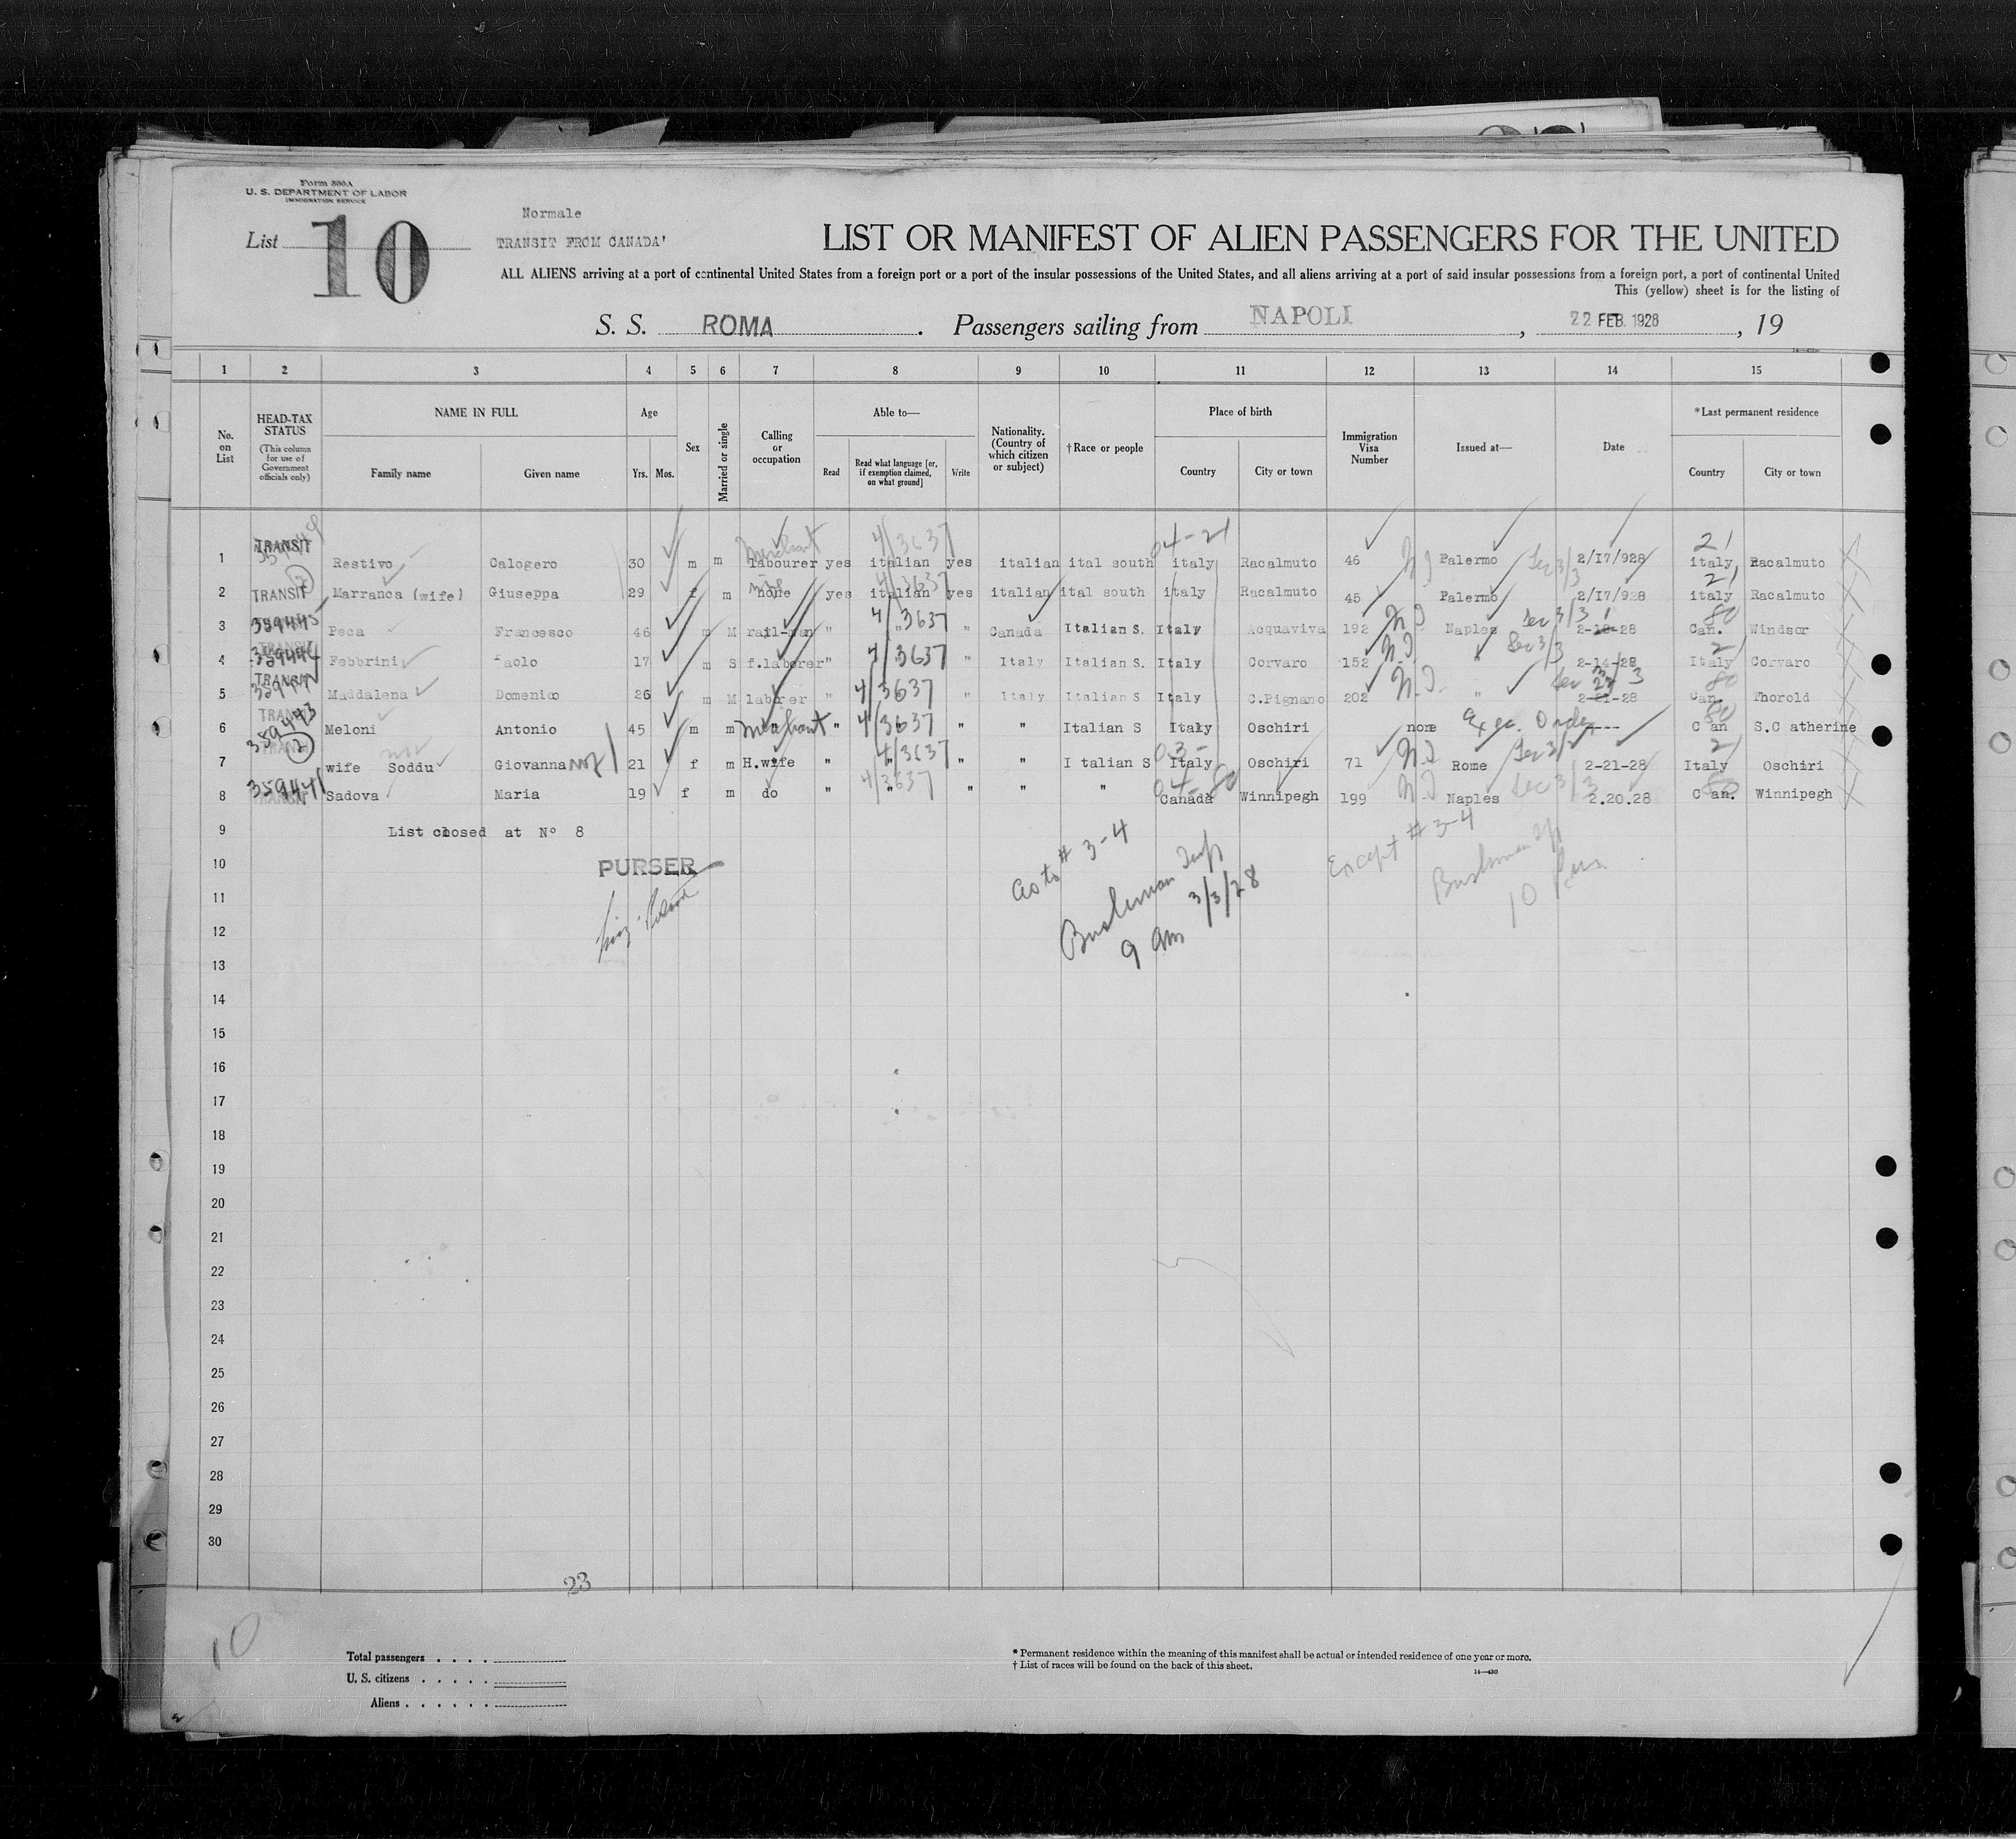 Form 500A
U. S. DEPARTMENT OF LABOR
IMMIGRATION SERVICE
List 10
Normale
TRANSIT FROM CANADA'
LIST OR MANIFEST OF ALIEN PASSENGERS FOR THE UNITED
ALL ALIENS arriving at a port of continental United States from a foreign port or a port of the insular possessions of the United States, and all aliens arriving at a port of said insular possessions from a foreign port, a port of continental United
This (yellow) sheet is for the listing of
S. S. ROMA. Passengers sailing from NAPOLI, 22 FEB. 1928, 19
1 2 3 4 5 6 7 8 9 10 11 12 13 14 15
No. on List
HEAD-TAX STATUS (This column for use of Government officials only)
NAME IN FULL Family name Given name
Age Yrs. Mos.
Sex
Married or single
Calling or occupation
Able to— Read Read what language [or, if exemption claimed, on what ground] Write
Nationality. (Country of which citizen or subject)
†Race or people
Place of birth Country City or town
Immigration Visa Number
Issued at—
Date
*Last permanent residence Country City or town
1 TRANSIT Restivo Calogero 30 m m Merchant labourer yes italian 4/3637 yes italian ital south 04-21 italy Racalmuto 46 Palermo Sec 3/3 2/17/928 21 italy Racalmuto
2 TRANSIT Marranca (wife) Giuseppa 29 f m none yes italian 4/3637 yes italian ital south italy Racalmuto 45 Palermo 2/17/928 21 italy Racalmuto
3 359445 Peca Francesco 46 m M rail-man " " 4/3637 " Canada Italian S. Italy Acquaviva 192 Naples Sec 3/3 2-18-28 80 Can. Windsor
4 TRANSIT Febbrini Paolo 17 m S f.laborer " 4/3637 " Italy Italian S. Italy Corvaro 152 " Sec 3/3 2-14-28 21 Italy Corvaro
5 TRANSIT Maddalena Domenico 26 m M laborer " 4/3637 " Italy Italian S Italy C.Pignano 202 " 2-21-28 80 Can. Thorold
6 TRANSIT 359443 Meloni Antonio 45 m m Merchant " 4/3637 " " Italian S Italy Oschiri none Exec. Order ---- 80 C an S.C atherine
7 wife Soddu Giovanna 21 f m H.wife " " 4/3637 " " I talian S 03- Italy Oschiri 71 Rome Sec 3/3 2-21-28 21 Italy Oschiri
8 359441 TRANSIT Sadova Maria 19 f m do " " 4/3637 " " " 04-80 Canada Winnipegh 199 Naples Sec 3/3 2.20.28 80 C an. Winnipegh
9 List closed at N° 8
10 PURSER
11
12
13
14
15
16
17
18
19
20
21
22
23
24
25
26
27
28
29
30
As to # 3-4
Bushman Insp
9 am 3/3/28
Except # 3-4
Bushman Insp
23
10
Total passengers
U. S. citizens
Aliens
* Permanent residence within the meaning of this manifest shall be actual or intended residence of one year or more.
† List of races will be found on the back of this sheet.
14—430